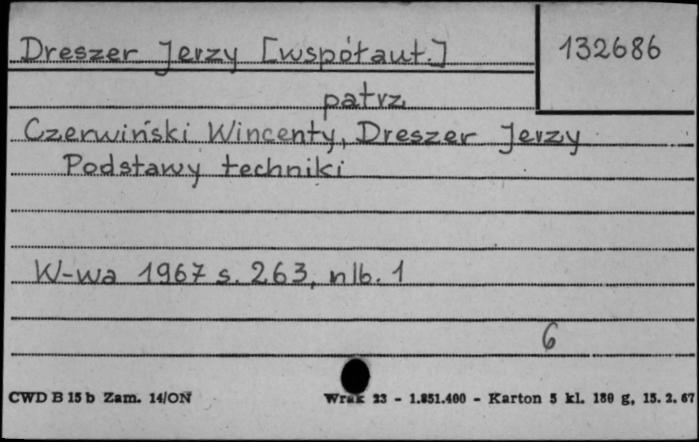 Dreszer Jerzy [współaut.]
132686
patrz
Czerwiński Wincenty, Dreszer Jerzy
Podstawy techniki
W-wa 1967 s. 263, nlb. 1
6
CWD B 15 b Zam. 14/ON
Wrak 23 - 1.851.400 - Karton 5 kl. 180 g, 15. 2. 67